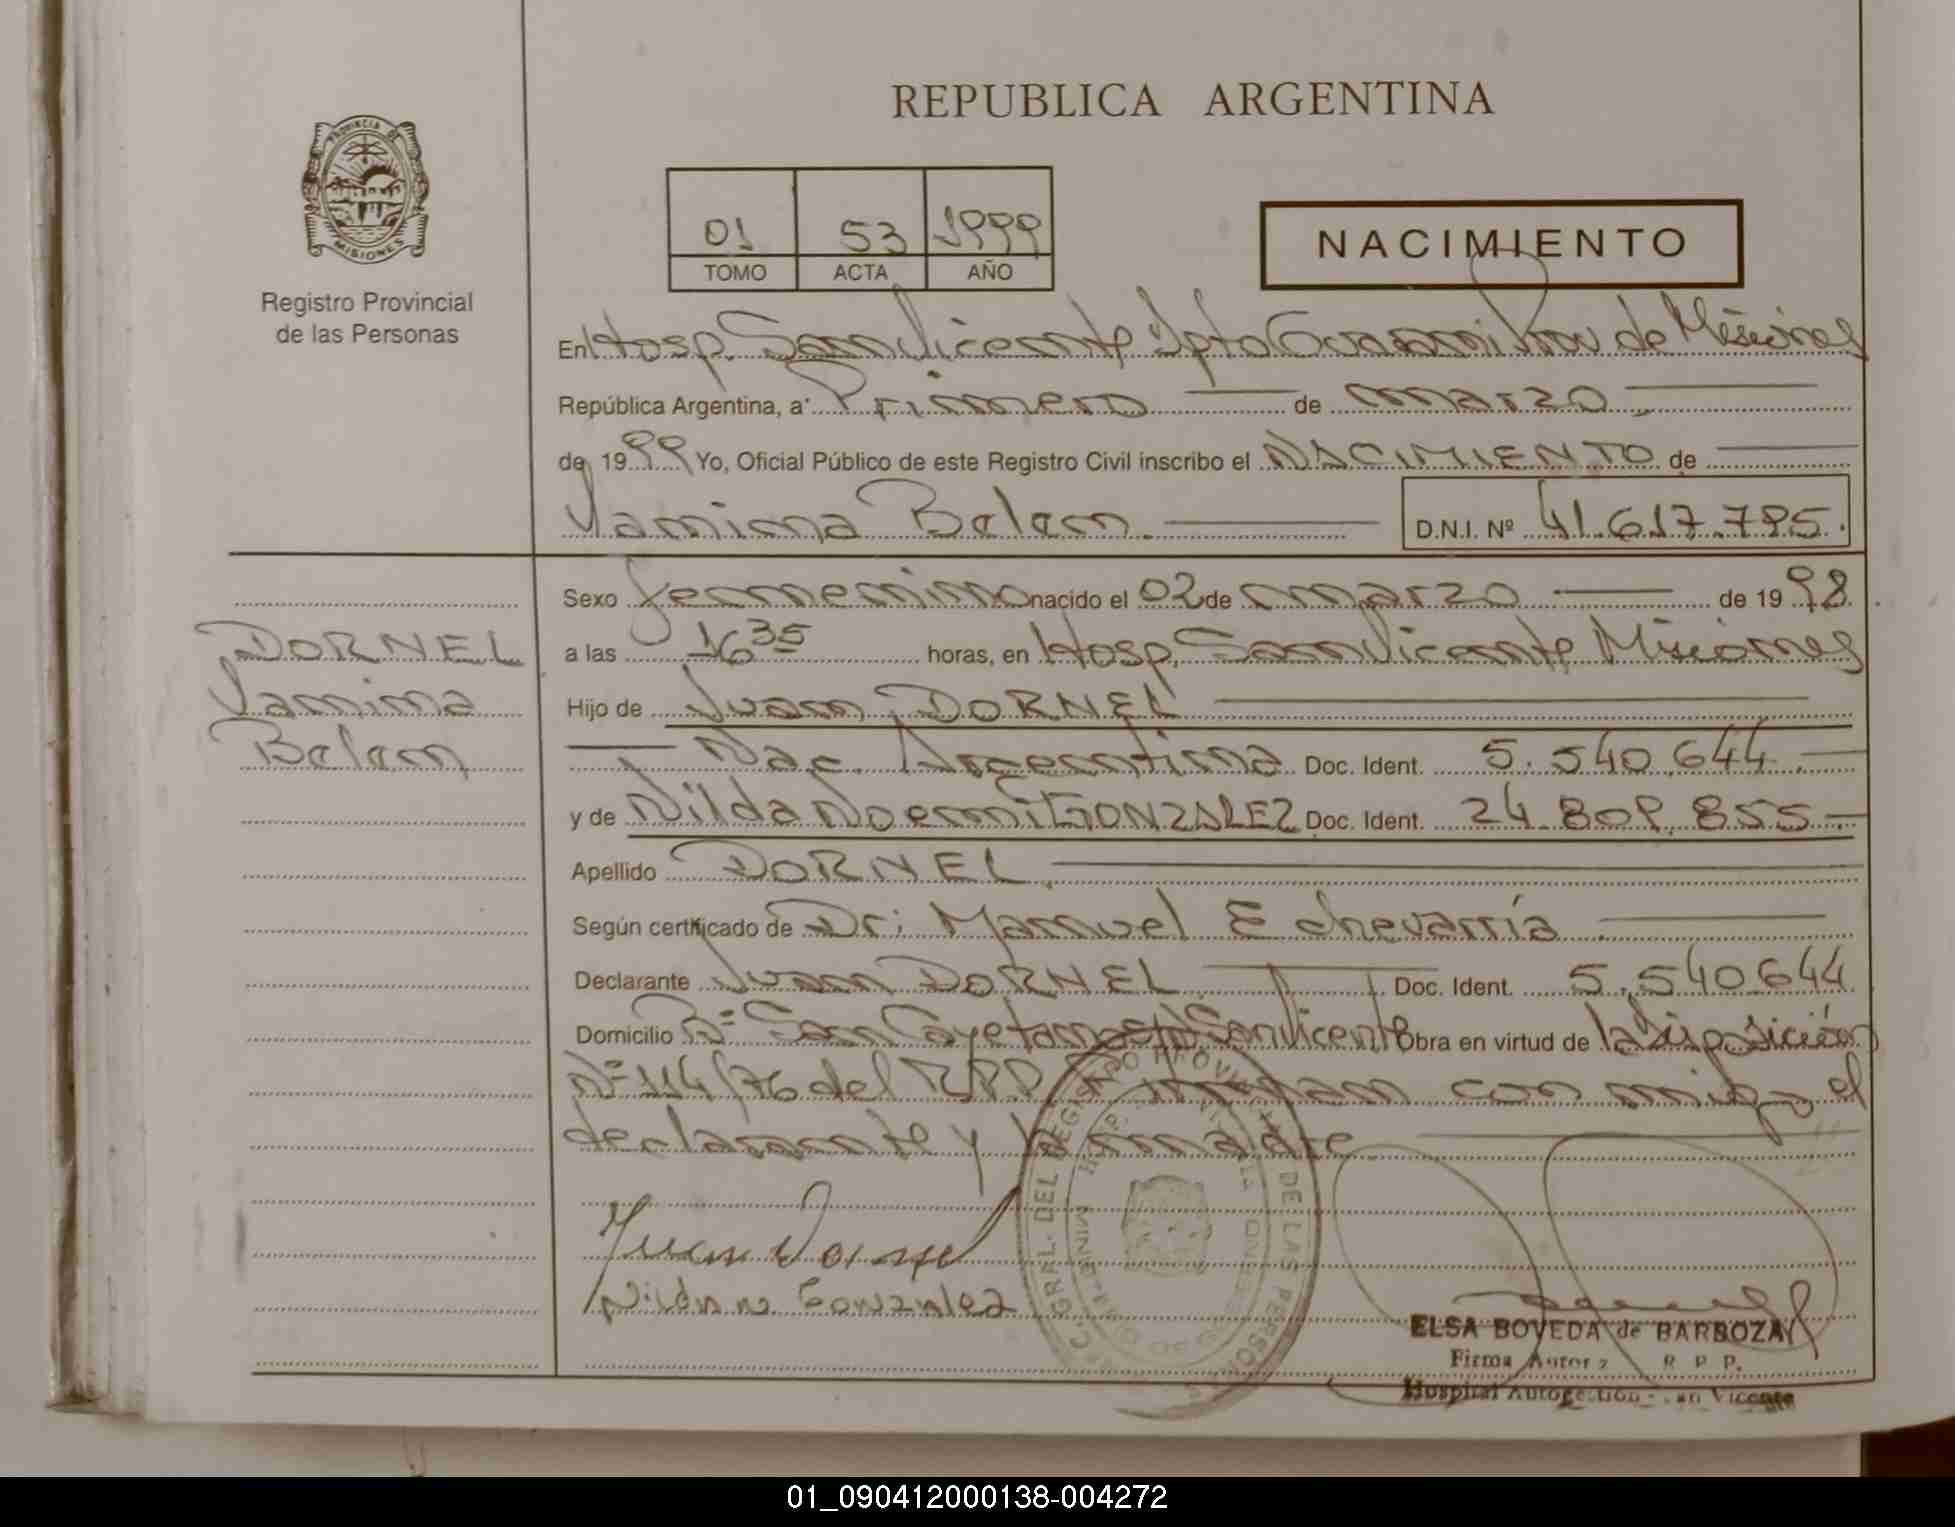 REPUBLICA ARGENTINA
PROVINCIA DE
MISIONES
Registro Provincial
de las Personas
01 53 1999
TOMO ACTA AÑO
NACIMIENTO
En Hosp. San Vicente Dpto Guaraní Prov de Misiones
República Argentina, a Primero de marzo
de 1999 Yo, Oficial Público de este Registro Civil inscribo el NACIMIENTO de
Yanina Belen. D.N.I. Nº 41.617.795.
DORNEL
Yanina
Belen
Sexo femenino nacido el 02 de marzo de 1998.
a las 16 35 horas, en Hosp. San Vicente Misiones
Hijo de Juan DORNEL
Nac. Argentina. Doc. Ident. 5.540.644.
y de Nilda Noemi GONZALEZ Doc. Ident. 24.809.855.
Apellido DORNEL.
Según certificado de Dr: Manuel Echevarría
Declarante Juan DORNEL Doc. Ident. 5.540644
Domicilio Bº San Cayetano San Vicente Obra en virtud de la Disposición
Nº 114/76 del R.P.P. Firman con migo el
declarante y la madre.
Juan Dornel
Nilda n Gonzalez
ELSA BOVEDA de BARBOZA
Firma Autoriz R. P. P.
Hospital Autogestión - San Vicente
01_090412000138-004272